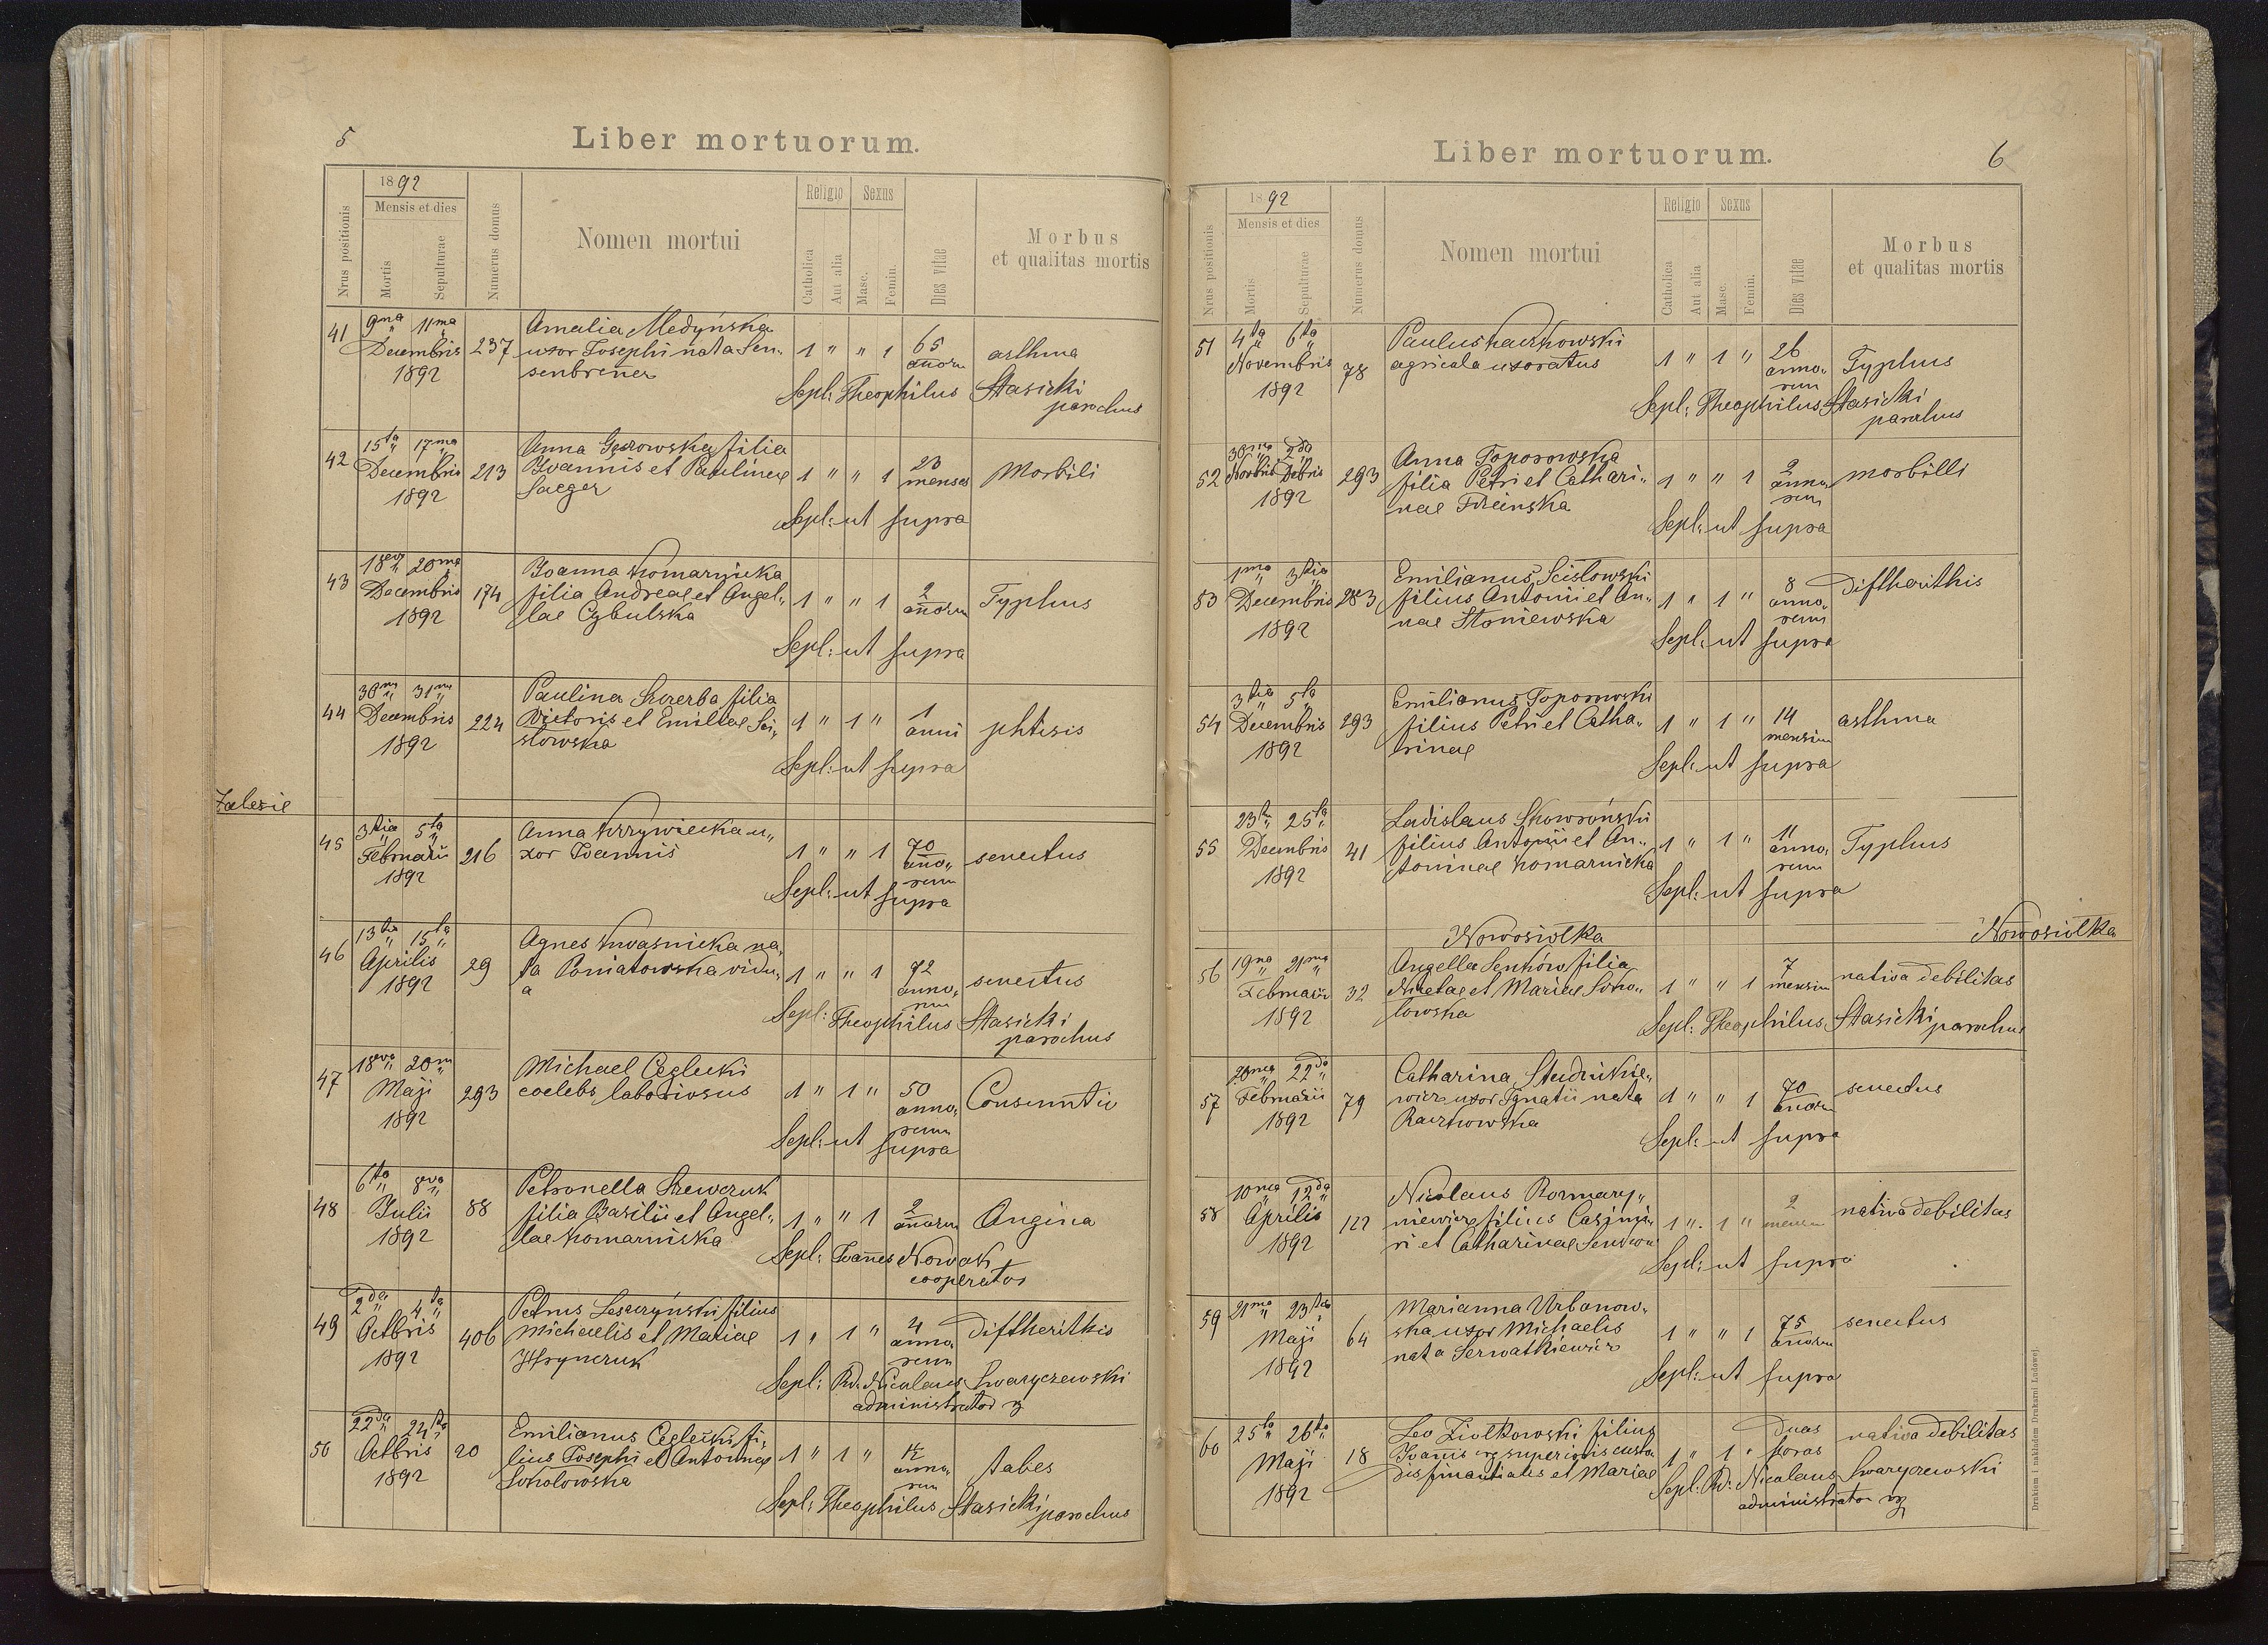 5
Liber mortuorum.
Nrus positionis
1892
Mensis et dies
Mortis
Sepulturae
Numerus domus
Nomen mortui
Religio
Catholica
Aut alia
Sexus
Masc.
Femin.
Dies vitae
Morbus
et qualitas mortis
41 9na 11ma Amalia Medyńska
Decembris 237 uxor Josephi nata Sen- 1 " " 1 65 asthma
1892 senbrener añorum
Sepl: Theophilus Stasicki
parochus
42 15ta 17ma Anna filia
Decembris 213 Joannis et Paulinae 1 " " 1 23 menses Morbili
1892 Saeger
Sepl: ut supra
43 18va 20ma Joanna Komarnicka
Decembris 174 filia Andreae et Angel- 1 " " 1 2 añorum Typhus
1892 lae Cybulska
Sepl: ut supra
44 30ma 31ma Paulina Szczerba filia
Decembris 224 Victoris et Emiliae Sci- 1 " 1 " 1 anni phtisis
1892 slowska
Sepl: ut supra
Zalesie
45 3tia 5ta Anna Krzywiecka u-
Februarii 216 xor Joannis 1 " " 1 70 año- senectus
1892 rum
Sepl: ut supra
46 13tia 15ta Agnes Kwasnicka na-
Aprilis 29 ta Poniatowska vidu- 1 " " 1 72 anno- senectus
1892 a rum
Sepl: Theophilus Stasicki
parochus
47 18va 20ma Michael Ceglecki
Maji 293 coelebs laboriosus 1 " 1 " 50 anno-
1892 rum
Sepl: ut supra
48 6ta 8va Petronella Szewczuk
Julii 88 filia Basilii et Angel- 1 " " 1 2 añorum Angina
1892 lae Komarniska
Sepl: Joañes Nowak
cooperator
49 2da 4ta Petrus Leszczyński filius
Octbris 406 Michaelis et Mariae 1 " 1 " 4 anno- Diftheritkis
1892 Hrynczuk rum
Sepl: Rd. Nicolaus Swaryczewski
administrator
50 22da 24ta Emilianus Ceglecki fi-
Octbris 20 lius Josephi et Antoninae 1 " 1 " anno- tabes
1892 Sokolowska rum
Sepl: Theophilus Stasicki parochus
6
Liber mortuorum.
Nrus positionis
1892
Mensis et dies
Mortis
Sepulturae
Numerus domus
Nomen mortui
Religio
Catholica
Aut alia
Sexus
Masc.
Femin.
Dies vitae
Morbus
et qualitas mortis
51 4ta 6ta Paulus Kaczkowski
Novembris 78 agricola uxoratus 1 " 1 " 26 anno- Typhus
1892 rum
Sepl: Theophilus Stasicki
parochus
52 30ma 2da Anna Toporowska
Novbris Debris 293 filia Petri et Cathari- 1 " " 1 2 anno- morbilli
1892 nae rum
Sepl: ut supra
53 1ma 3tia Emilianus Scislowski
Decembris 283 filius Antonii et An- 1 " 1 " 8 anno- Diftherithis
1892 nae Sloniewska rum
Sepl: ut supra
54 3tia 5ta Emilianus Toporowski
Decembris 293 filius Petri et Catha- 1 " 1 " 14 mensium asthma
1892 rinae
Sepl: ut supra
55 23tia 25ta Ladislaus Skowroński
Decembris 41 filius Antonii et An- 1 " 1 " 11 anno- Typhus
1892 toninae Komarnicka rum
Sepl: ut supra
Nowosiolka Nowosiolka
56 19na 21ma Angella Senków filia
Februarii 32 Nicetae et Mariae Soko- 1 " " 1 7 mensium nativa debilitas
1892 lowska
Sepl: Theophilus Stasicki parochus
57 20ma 22da Catharina Studnikie-
Februarii 79 wicz uxor Ignatii nata 1 " " 1 70 añorum senectus
1892 Raczkowska
Sepl: ut supra
58 10ma 12da Nicolaus Rozmary-
Aprilis 122 niewicz filius Casimi- 1 " 1 " 2 mensium nativa debilitas
1892 ri et Catharinae
Sepl: ut supra
59 21ma 23tia Marianna Urbanow-
Maji 64 ska uxor Michaelis 1 " " 1 75 añorum senectus
1892 nata Serwatkiewicz
Sepl: ut supra
60 25ta 26ta Leo Ziolkowski filius
Maji 18 Joañis superioris custo- 1 " 1 " Duas horas nativa debilitas
1892 dis finantiales et Mariae
Sepl: Rd: Nicolaus Swaryczewski
administrator
Drukiem i nakładem Drukarni Ludowej.